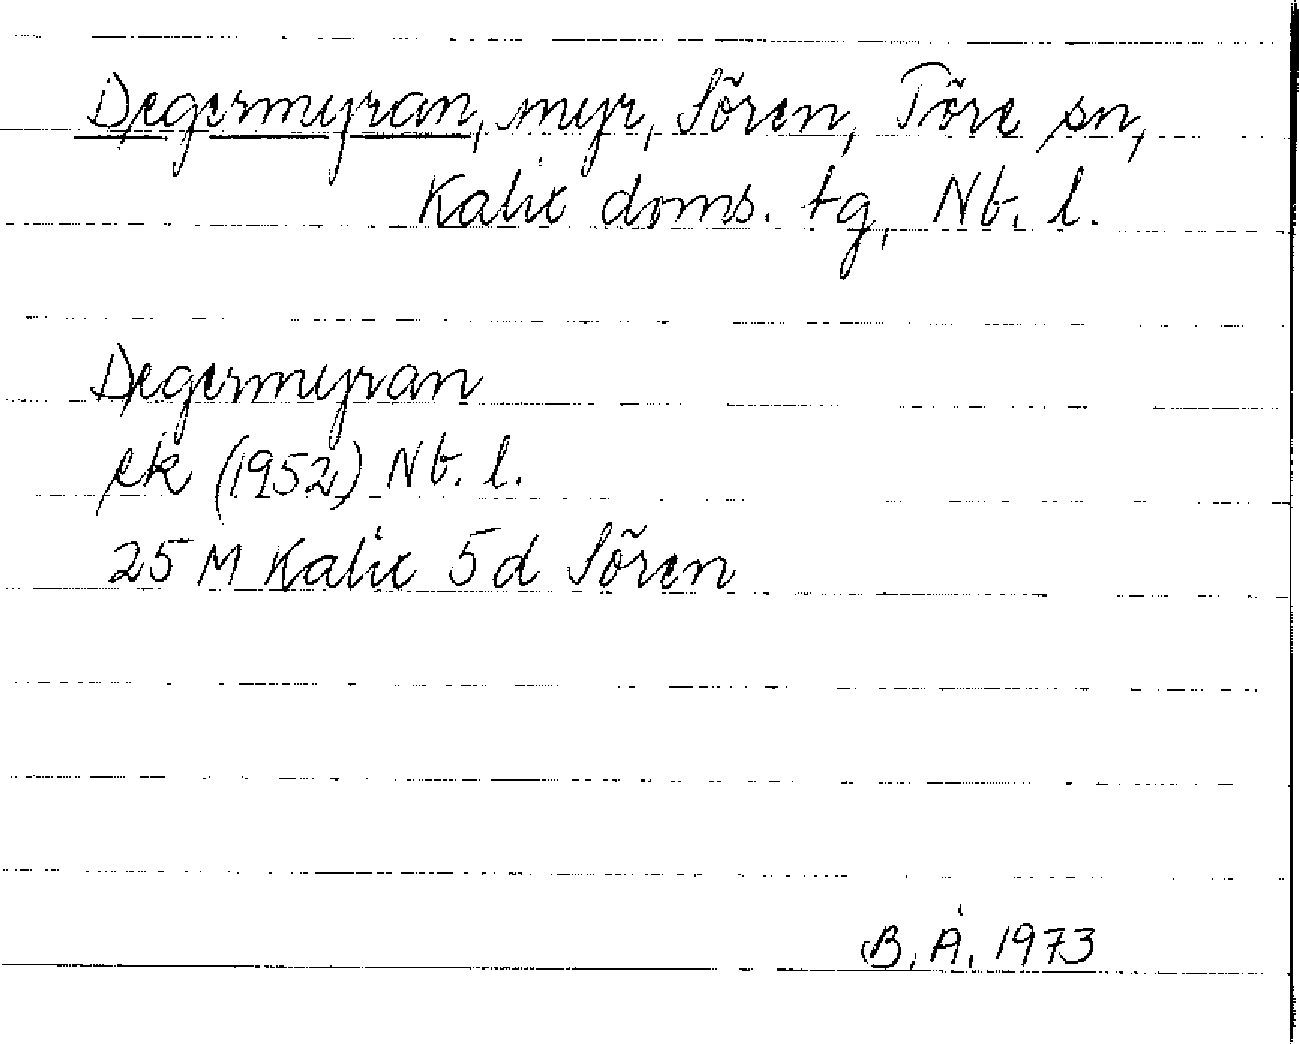 Degermyran, myr, Sören, Töre sn,
Kalix doms. tg, Nb. l.
Degermyran
ek (1952) Nb. l.
25 M Kalix 5d Sören
B. Å. 1973